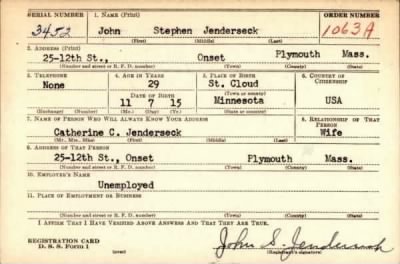 SERIAL NUMBER 1. NAME (Print) ORDER NUMBER
3452 John Stephen Jenderseck 1063A
(First) (Middle) (Last)
2. ADDRESS (Print)
25-12th St., Onset Plymouth Mass.
(Number and street or R. F. D. number) (Town) (County) (State)
3. TELEPHONE 4. AGE IN YEARS 5. PLACE OF BIRTH 6. COUNTRY OF CITIZENSHIP
None 29 St. Cloud
(Town or county)
DATE OF BIRTH
11 7 15 Minnesota USA
(Exchange) (Number) (Mo.) (Day) (Yr.) (State or country)
7. NAME OF PERSON WHO WILL ALWAYS KNOW YOUR ADDRESS 8. RELATIONSHIP OF THAT PERSON
Catherine C. Jenderseck Wife
(Mr., Mrs., Miss) (First) (Middle) (Last)
9. ADDRESS OF THAT PERSON
25-12th St., Onset Plymouth Mass.
(Number and street or R. F. D. number) (Town) (County) (State)
10. EMPLOYER'S NAME
Unemployed
11. PLACE OF EMPLOYMENT OR BUSINESS
(Number and street or R. F. D. number) (Town) (County) (State)
I AFFIRM THAT I HAVE VERIFIED ABOVE ANSWERS AND THAT THEY ARE TRUE.
REGISTRATION CARD
D. S. S. Form 1 (over) John S. Jenderseck
(Registrant's signature)